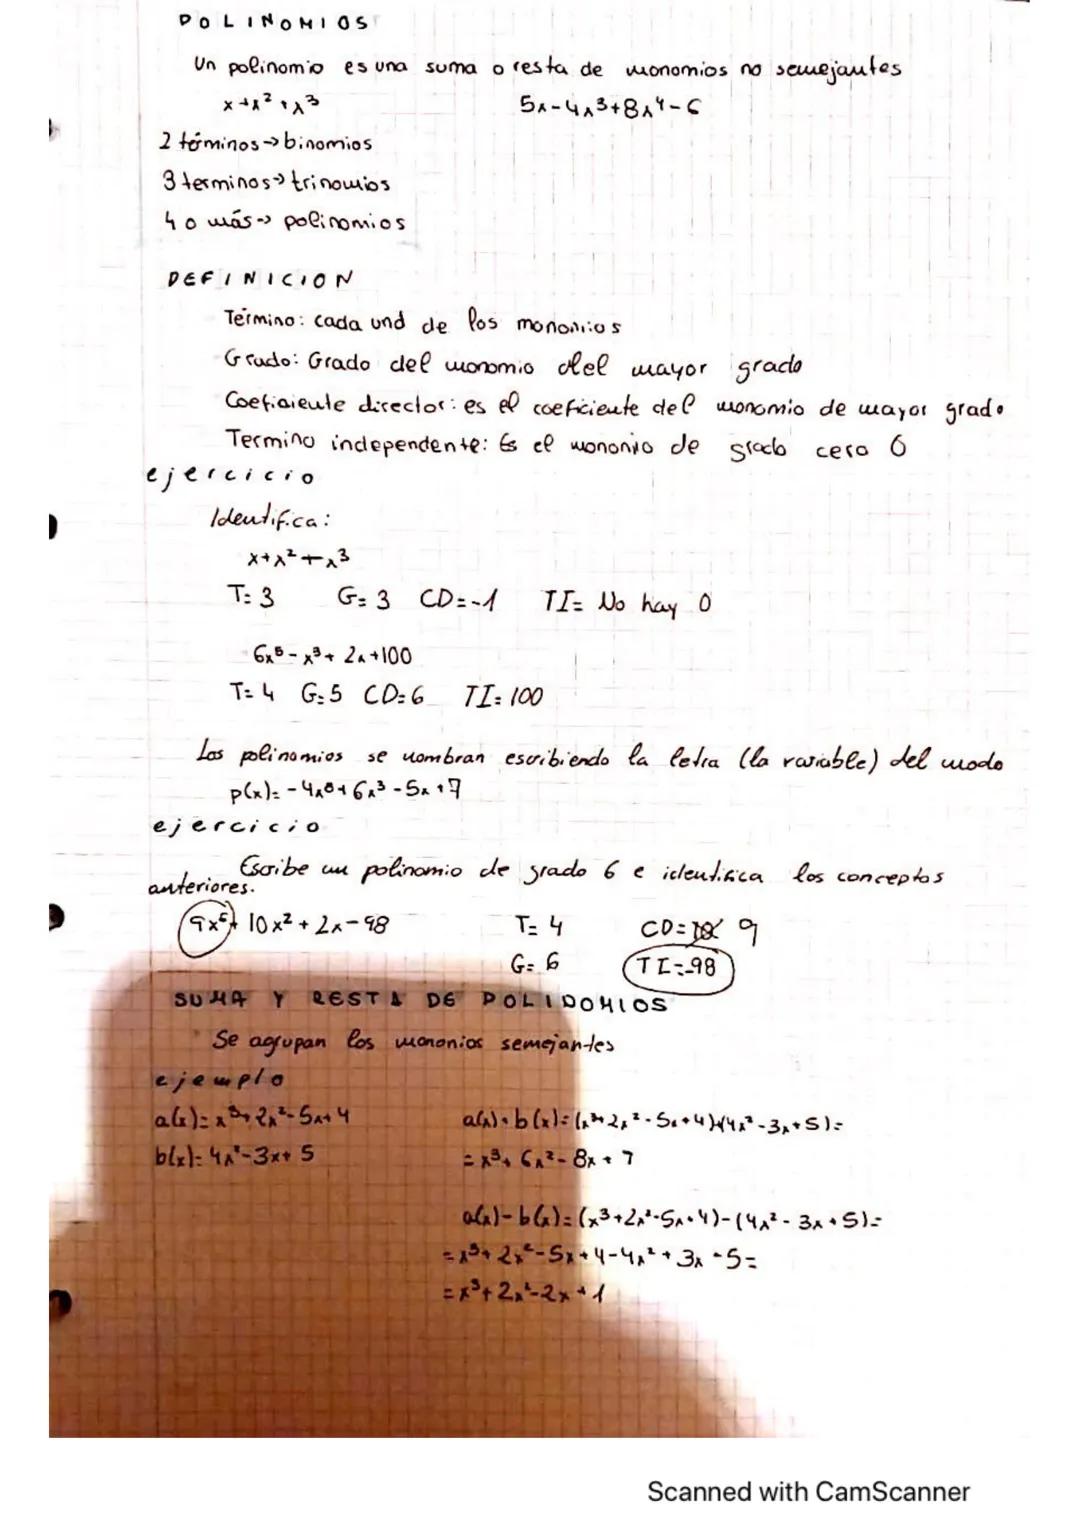 POLINOMIOS
Un polinomio es una suma o resta de monomios no semejantes
x+x²+x³ 5x-4x³+8x⁴-6
2 términos→binomios
3 terminos→trinomios
4 o más→ polinomios
DEFINICION
Término: cada uno de los monomios
Grado: Grado del monomio del mayor grado
Coeficiente director: es el coeficiente del monomio de mayor grado
Termino independente: Es el monomio de grado cero 0
ejercicio
Identifica:
x+x²+x³
T: 3 G= 3 CD=-1 TI= No hay 0
6x⁵-x³+2x+100
T= 4 G=5 CD=6 TI=100
Los polinomios se nombran escribiendo la letra (la variable) del modo
p(x)=-4x⁸+6x³-5x+7
ejercicio
Escribe un polinomio de grado 6 e identifica los conceptos
anteriores.
9x⁶+10x²+2x-98 T= 4 CD= 9
G= 6 TI=-98
SUMA Y RESTA DE POLINOMIOS
Se agrupan los monomios semejantes
ejemplo
a(x)=x³+2x²-5x+4 a(x)+b(x)=(x³+2x²-5x+4)+(4x²-3x+5)=
b(x)=4x²-3x+5 =x³+6x²-8x+7
a(x)-b(x)=(x³+2x²-5x+4)-(4x²-3x+5)=
=x³+2x²-5x+4-4x²+3x-5=
=x³+2x²-2x+1
Scanned with CamScanner